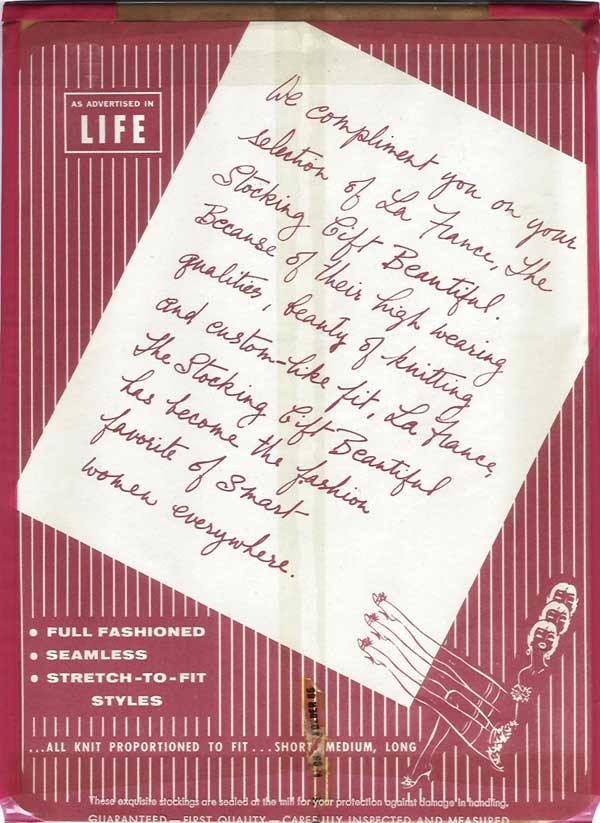 AS ADVERTISED IN
LIFE
We compliment you on your
selection of La France, The
Stocking Gift Beautiful.
Because of their high wearing
qualities, beauty of knitting
and custom-like fit, La France,
The Stocking Gift Beautiful
has become the fashion
favorite of smart
women everywhere.
• FULL FASHIONED
• SEAMLESS
• STRETCH-TO-FIT
STYLES
...ALL KNIT PROPORTIONED TO FIT...SHORT, MEDIUM, LONG
These exquisite stockings are sealed at the mill for your protection against damage in handling.
GUARANTEED—FIRST QUALITY—CAREFULLY INSPECTED AND MEASURED